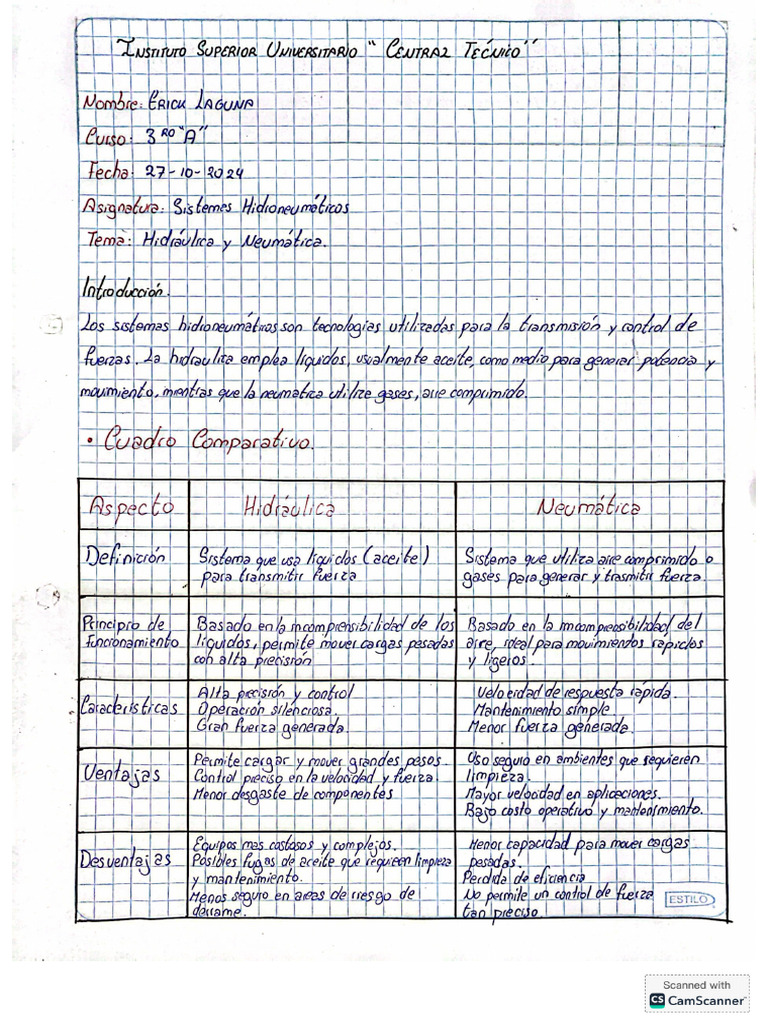 INSTITUTO SUPERIOR UNIVERSITARIO "CENTRAL TECNICO"
Nombre: ERICK LAGUNA
Curso: 3 RO "A"
Fecha: 27-10-2024
Asignatura: Sistemas Hidroneumáticos
Tema: Hidráulica y Neumática.
Introducción.
Los sistemas hidroneumáticos son tecnologías utilizadas para la transmisión y control de
fuerzas. La hidraulica emplea líquidos, usualmente aceite, como medio para generar potencia y
movimiento, mientras que la neumatica utilize gases, aire comprimido.
• Cuadro Comparativo.
Aspecto Hidráulica Neumática
Definición
Sistema que usa líquidos (aceite)
para transmitir fuerza
Sistema que utiliza aire comprimido o
gases para generar y trasmitir fuerza.
Principio de
funcionamiento
Basado en la incomprensibilidad de los
líquidos, permite mover cargas pesadas
con alta precisión
Basado en la incomprensibilidad del
aire, ideal para movimientos rápidos
y ligeros.
Características
Alta precisión y control
Operación silenciosa.
Gran fuerza generada.
Velocidad de respuesta rápida.
Mantenimiento simple
Menor fuerza generada.
Ventajas
Permite cargar y mover grandes pesos
Control preciso en la velocidad y fuerza.
Menor desgaste de componentes
Uso seguro en ambientes que requieren
limpieza.
Mayor velocidad en aplicaciones.
Bajo costo operativo y mantenimiento.
Desventajas
Equipos mas costosos y complejos.
Posibles fugas de aceite que requieren limpieza
y mantenimiento.
Menos seguro en areas de riesgo de
derrame.
Menor capacidad para mover cargas
pesadas.
Perdida de eficiencia
No permite un control de fuerza
tan preciso
ESTILO
Scanned with
CS CamScanner